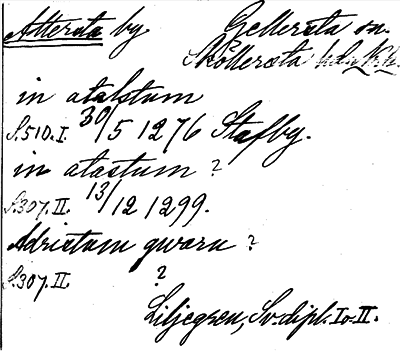 Altersta by Gellersta sn.
Sköllersta hd. Nke.
in atalstum
S. 510. I. 30/5 1276 Stafby.
in atastum ?
S. 307. II. 13/12 1299.
Adristum qwarn ?
S. 307. II. ?
Liljegren, Sv. dipl. I o. II.